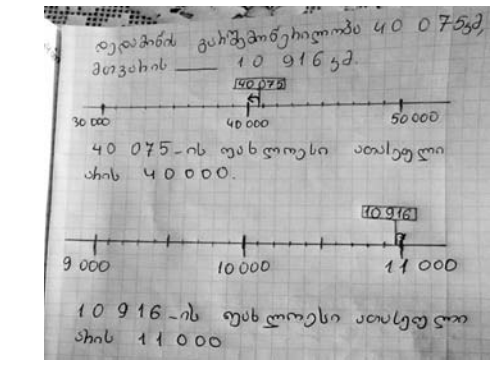 დედამიწის გარშემოწერილობა 40 075კმ,
მთვარის — 10 916 კმ.
40 075
30 000 40 000 50 000
40 075-ის უახლოესი ათასეული
არის 40000.
10 916
9 000 10 000 11 000
10 916-ის უახლოესი ათასეული
არის 11 000